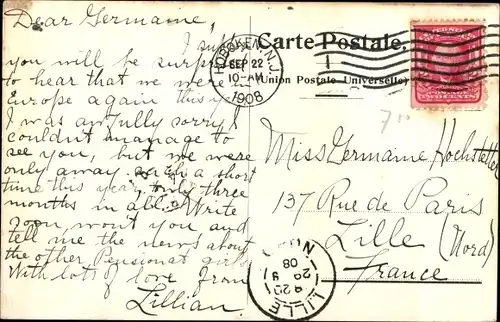 Dear Germaine,
I suppose
you will be surprised
to hear that we were in
Europe again this year.
I was awfully sorry I
couldn't manage to
see you, but we were
only away such a short
time this year, only three
months in all. Write
soon, won't you and
tell me the news about
the other Pensionat girls
With lots of love from
Lillian.
HOBOKEN, N.J.
SEP 22
10-AM
1908
Carte Postale.
(Union Postale Universelle)
TWO CENTS
Miss Germaine Hochstetter
137 Rue de Paris
Lille (Nord)
France
LILLE
NORD
08